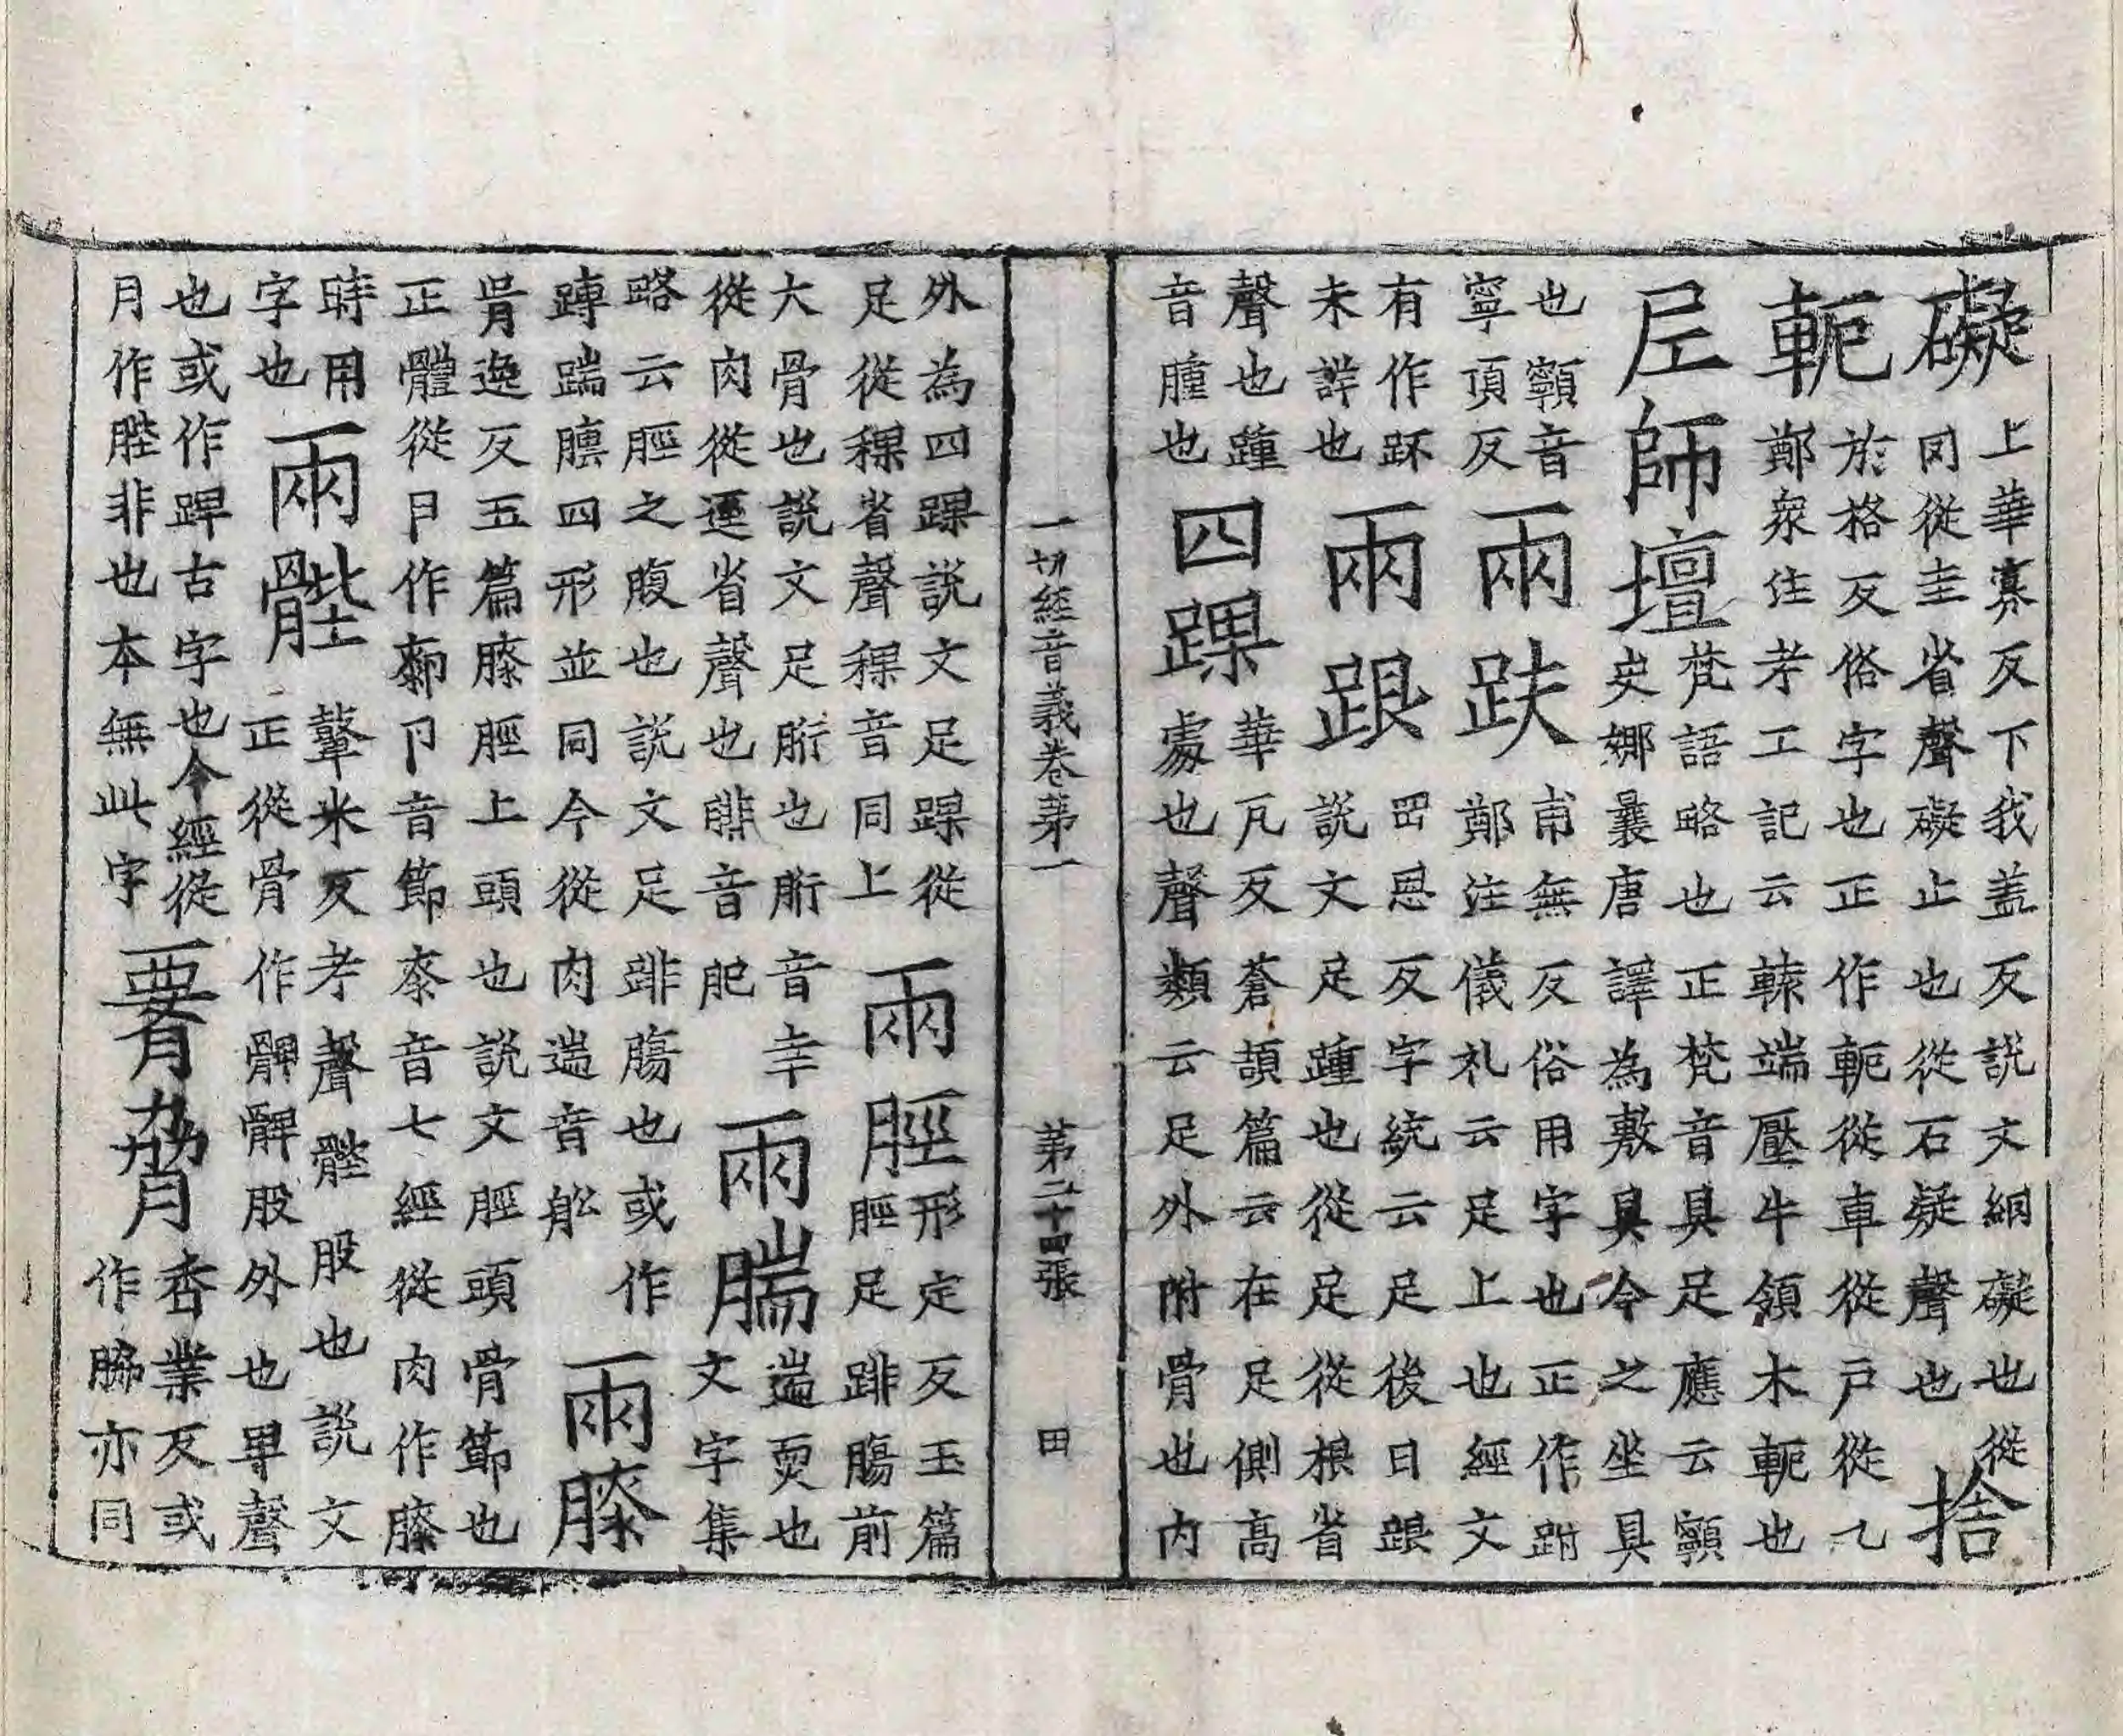 礙上華寡反下我蓋反說文絓礙也從
罔從圭省聲礙止也從石疑聲也捨
軶於格反俗字也正作軶從車從戶從乙
鄭衆注考工記云轅端壓牛領木軶也
尼師壇梵語略也正梵音具足應云顊
史娜曩唐譯為敷具今之坐具
也顊音
寧頂反
兩趺甫無反俗用字也正作跗
鄭注儀礼云足上也經文
有作跊
未詳也
兩跟罡恩反字統云足後曰跟
說文足踵也從足從根省
聲也踵
音腫也
四踝華瓦反蒼頡篇云在足側高
處也聲類云足外附骨也內
一切經音義卷苐一 苐二十四張 田
外為四踝說文足踝從
足從稞省聲稞音同上
兩脛形定反玉篇
脛足跰腸前
大骨也說文足胻也胻音幸
從肉從逕省聲也腓音肥
兩腨遄耎也
文字集
略云脛之腹也說文足跰腸也或作
蹲踹膞四形並同今從肉遄音船
兩膝
胥逸反五篇膝脛上頭也說文脛頭骨節也
正體從卪作厀卪音節桼音七經從肉作膝
時用
字也
兩髀鼙米反考聲髀股也說文
正從骨作髀髀股外也卑聲
也或作踔古字也今經從
月作䏶非也本無此字
𦝫脅杏業反或
作脇亦同